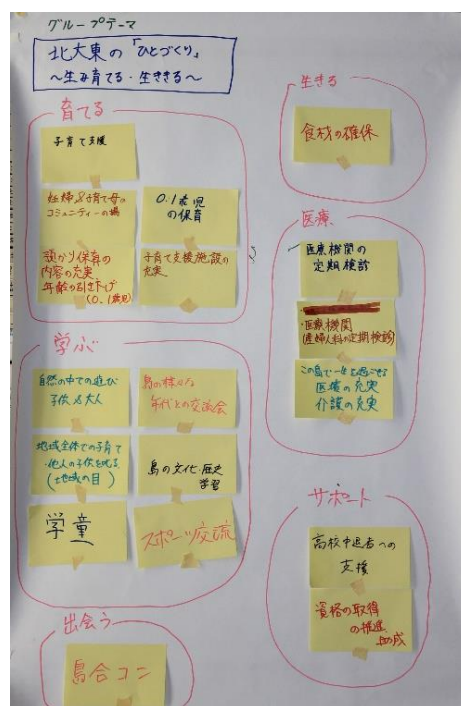 グループテーマ
北大東の「ひとづくり」
～生み育てる・生ききる～
育てる
子育て支援
妊婦&子育て母の
コミュニティーの場
0.1歳児
の保育
預かり保育の
内容の充実
年齢の引き下げ
(0.1歳児)
子育て支援施設の
充実
学ぶ
自然の中での遊び
子供&大人
島の様々な
年代との交流会
地域全体での子育て
・他人の子供を叱る
(地域の目)
島の文化・歴史
学習
学童
スポーツ交流
出会う
島合コン
生きる
食材の確保
医療
医療機関の
定期検診
・医療機関
(産婦人科の定期検診)
この島で一生を過ごせる
医療の充実
介護の充実
サポート
高校中退者への
支援
資格の取得
の推進
助成